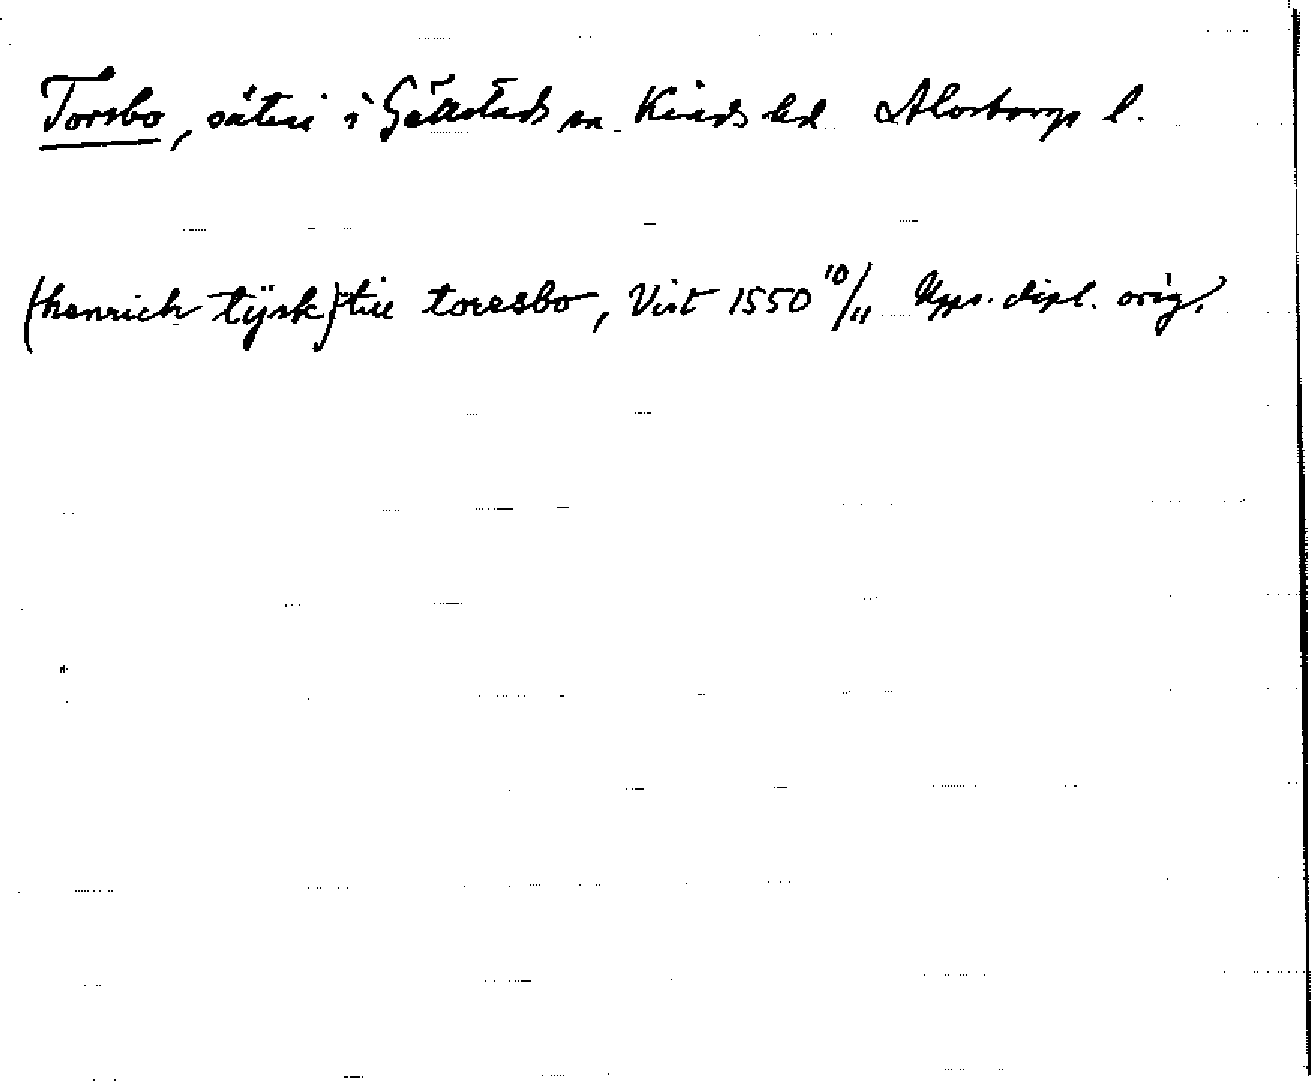 Torsbo, säteri i Gällstads sn Kinds hd Älvsborgs l.
(henrich tÿsk) till toresbo, Vist 1550 10/11 Upps. dipl. orig.